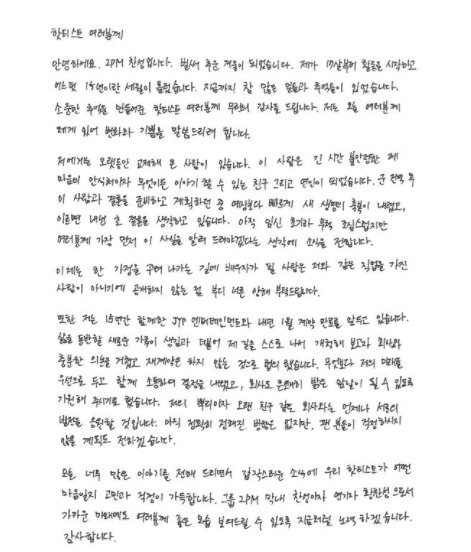 핫티스트 여러분께
안녕하세요, 2PM 찬성입니다. 벌써 추운 겨울이 되었습니다. 제가 17살부터 활동을 시작하고
어느덧 15년이란 세월이 흘렀습니다. 지금까지 참 많은 일들과 추억들이 있었습니다.
소중한 추억을 만들어준 핫티스트 여러분께 무한의 감사를 드립니다. 저는 오늘 여러분께
제게 있어 변화와 기쁨을 말씀드리려 합니다.
저에게는 오랫동안 교제해 온 사람이 있습니다. 이 사람은 긴 시간 불안정한 제
마음의 안식처이자 무엇이든 이야기 할 수 있는 친구 그리고 연인이 되었습니다. 군 전역 후
이 사람과 결혼을 준비하고 계획하던 중 예상보다 빠르게 새 생명의 축복이 내렸고,
이르면 내년 초 결혼을 생각하고 있습니다. 아직 임신 초기라 무척 조심스럽지만
여러분께 가장 먼저 이 사실을 알려 드려야겠다는 생각에 소식을 전합니다.
이제는 한 가정을 꾸려 나가는 길에 배우자가 될 사람은 저와 같은 직업을 가진
사람이 아니기에 공개하지 않는 점 부디 너른 양해 부탁드립니다.
또한 저는 15년간 함께한 JYP 엔터테인먼트와 내년 1월 계약 만료를 앞두고 있습니다.
삶을 동반할 새로운 가족이 생김과 더불어 제 길을 스스로 나서 개척해 보고자 회사와
충분한 의논을 거쳤고 재계약은 하지 않는 것으로 협의 했습니다. 무엇보다 저의 미래를
우선으로 두고 함께 소통하며 결정을 내렸고, 회사도 온전히 밝은 앞날이 될 수 있도록
기원해 주시기로 했습니다. 저의 뿌리이자 오랜 친구 같은 회사와는 언제나 서로의
발전을 응원할 것입니다. 아직 정확히 정해진 방향은 없지만, 팬 분들이 걱정하시지
않을 계획도 전하겠습니다.
오늘 너무 많은 이야기를 전해 드리면서 갑작스러운 소식에 우리 핫티스트가 어떤
마음일지 고민과 걱정이 가득합니다. 그룹 2PM 막내 찬성이자 연기자 황찬성으로서
가까운 미래에도 여러분께 좋은 모습 보여드릴 수 있도록 지금처럼 노력하겠습니다.
감사합니다.